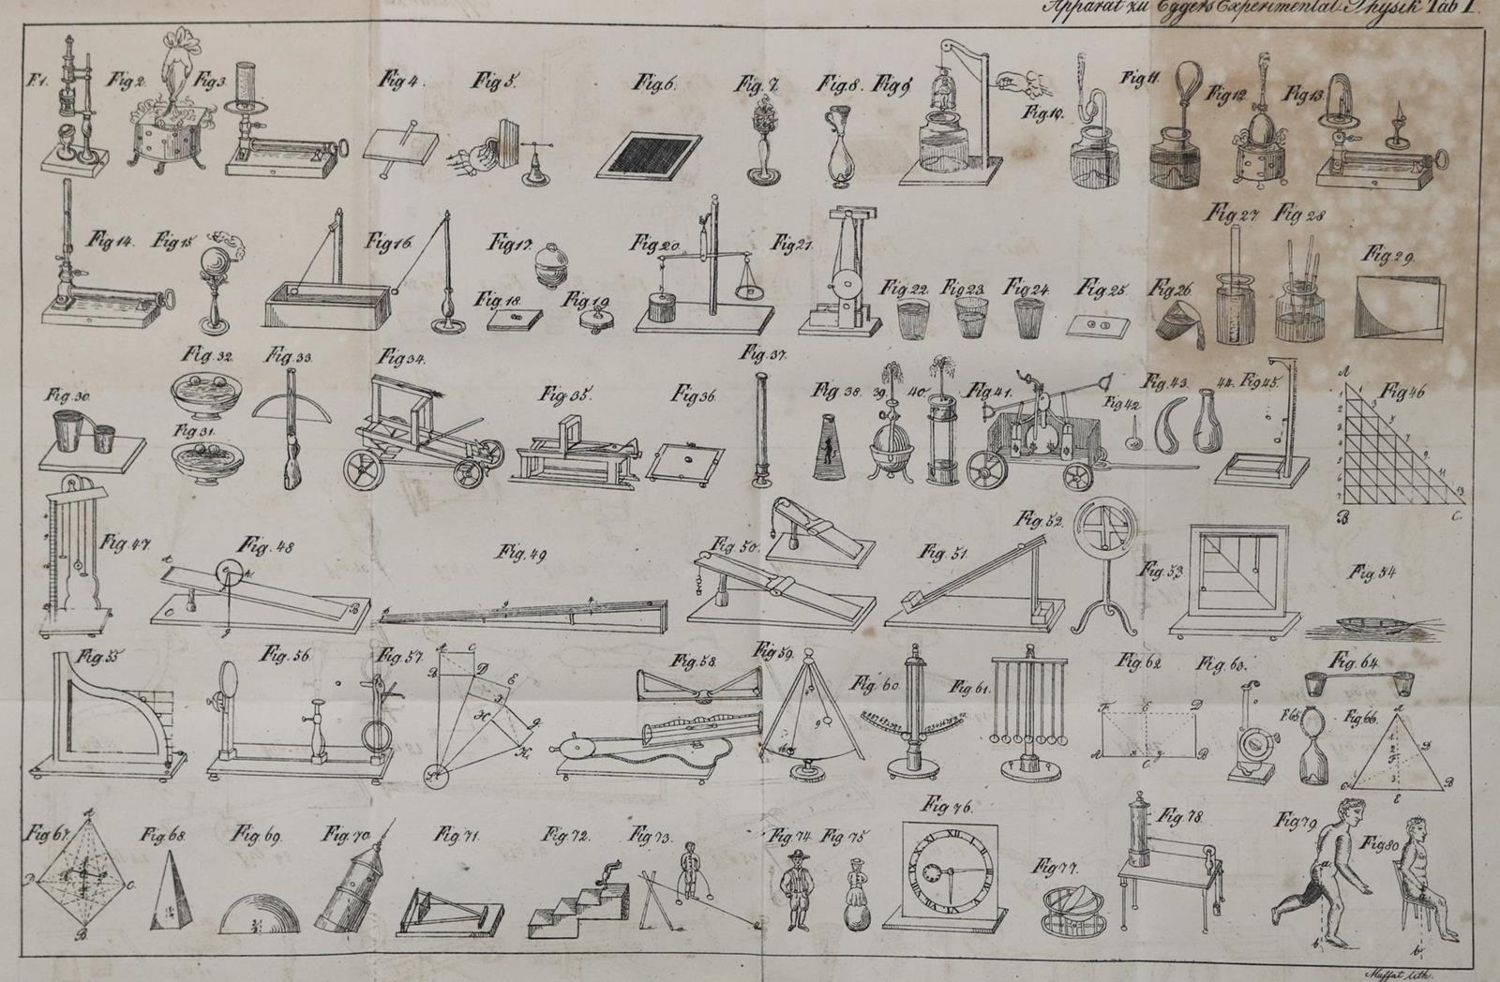 Apparat zu Eggers Experimental-Physik Tab I.
F.1. Fig 2. Fig 3. Fig 4. Fig 5. Fig 6. Fig. 7. Fig 8. Fig 9 Fig 10. Fig 11. Fig 12. Fig 13.
Fig 14. Fig 15 Fig 16. Fig 17. Fig 18. Fig 19 Fig 20. Fig 21. Fig 22. Fig 23. Fig 24. Fig 25. Fig 26. Fig 27 Fig 28 Fig 29.
Fig. 30. Fig. 31. Fig. 32. Fig. 33. Fig 34. Fig 35. Fig 36. Fig. 37. Fig 38. 39. 40. Fig 41. Fig 42 Fig. 43. 44. Fig 45. Fig 46
A
B C.
Fig. 47. Fig. 48 Fig. 49 Fig. 50. Fig. 51. Fig. 52. Fig. 53. Fig. 54
A B C
Fig. 55 Fig. 56. Fig. 57. Fig. 58. Fig 59. Fig. 60. Fig 61. Fig 62 Fig. 63. Fig. 64. F 65. Fig 66.
Fig 67. Fig 68. Fig. 69. Fig. 70. Fig. 71. Fig. 72. Fig. 73. Fig. 74. Fig 75 Fig 76. Fig 77. Fig. 78. Fig 79 Fig 80
XII I
b b
Maffat lith.